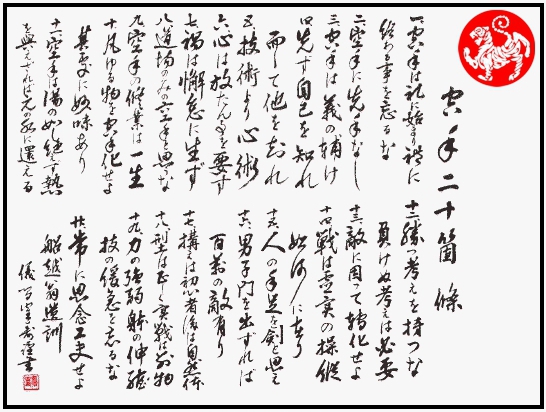 空手二十箇條
一空手は礼に始まり禮に
終わる事を忘るな
二空手に先手なし
三空手は義の輔け
四先ず自己を知れ
而して他を知れ
五技術より心術
六心は放たん事を要す
七禍は懈怠に生ず
八道場のみの空手と思うな
九空手の修業は一生
十凡ゆる物を空手化せよ
其處に妙味あり
十一空手は湯の如し絶えず熱
を与えざれば元の水に還える
十二勝つ考えを持つな
負けぬ考えは必要
十三敵に因って轉化せよ
十四戦は虚実の操縦
如何に在り
十五人の手足を劔と思え
十六男子門を出ずれば
百萬の敵有り
十七構えは初心者に後は自然体
十八型は正しく実戦は別物
十九力の強弱躰の伸縮
技の緩急を忘るな
廿常に思念工夫せよ
船越翁遺訓
儀間真謹書